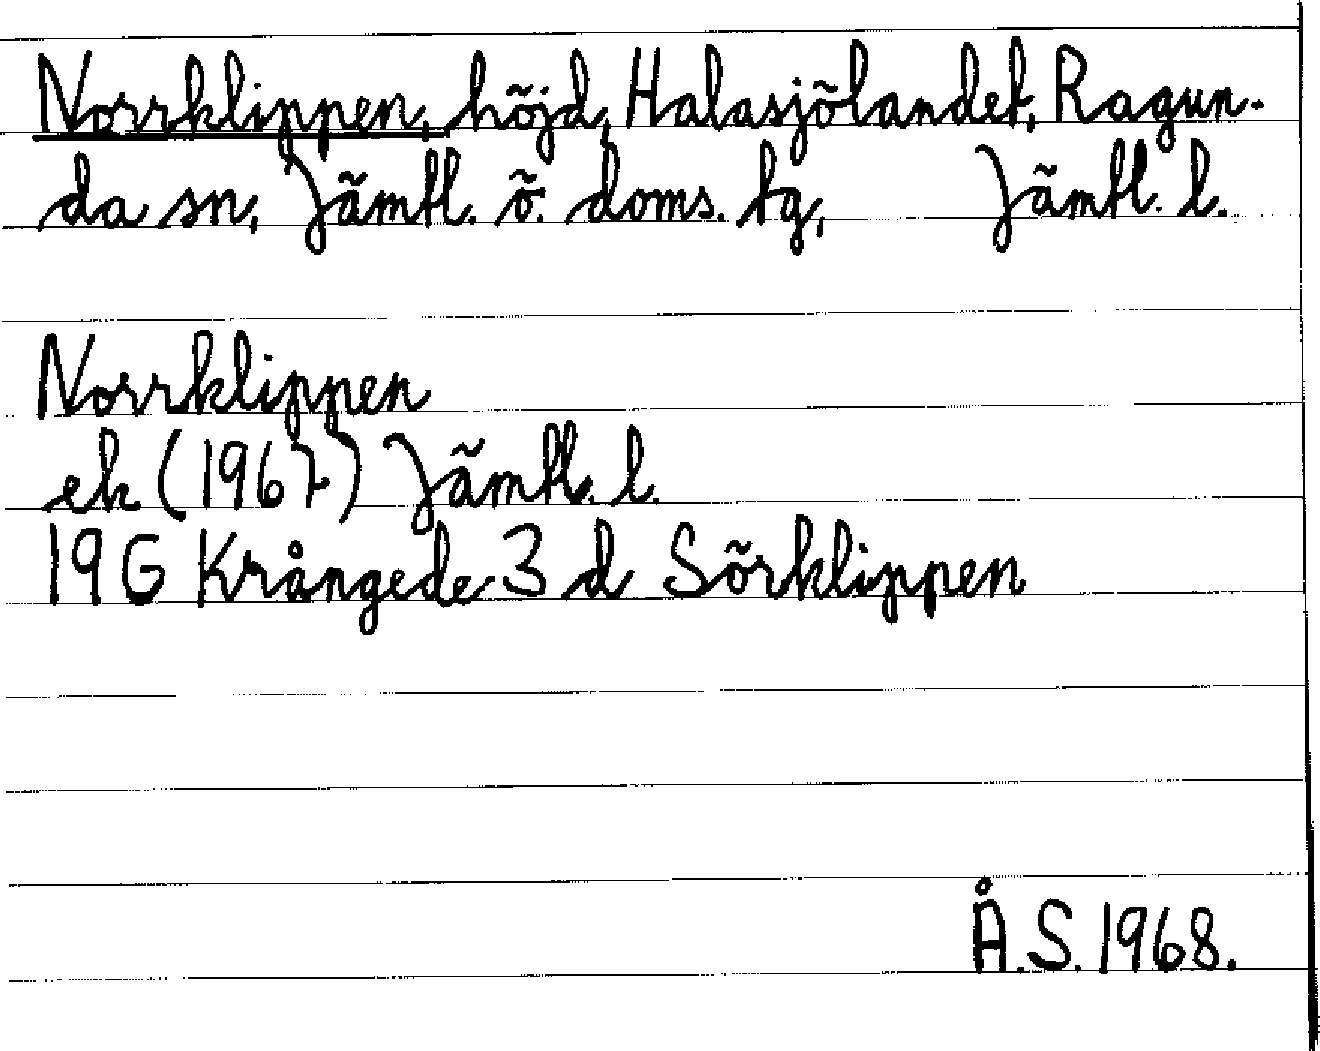 Norrklippen, höjd, Halasjölandet, Ragun-
da sn, Jämtl. ö. doms. tg, Jämtl. l.
Norrklippen
ek (1967) Jämtl. l.
19G Krångede 3 d Sörklippen
Å.S. 1968.